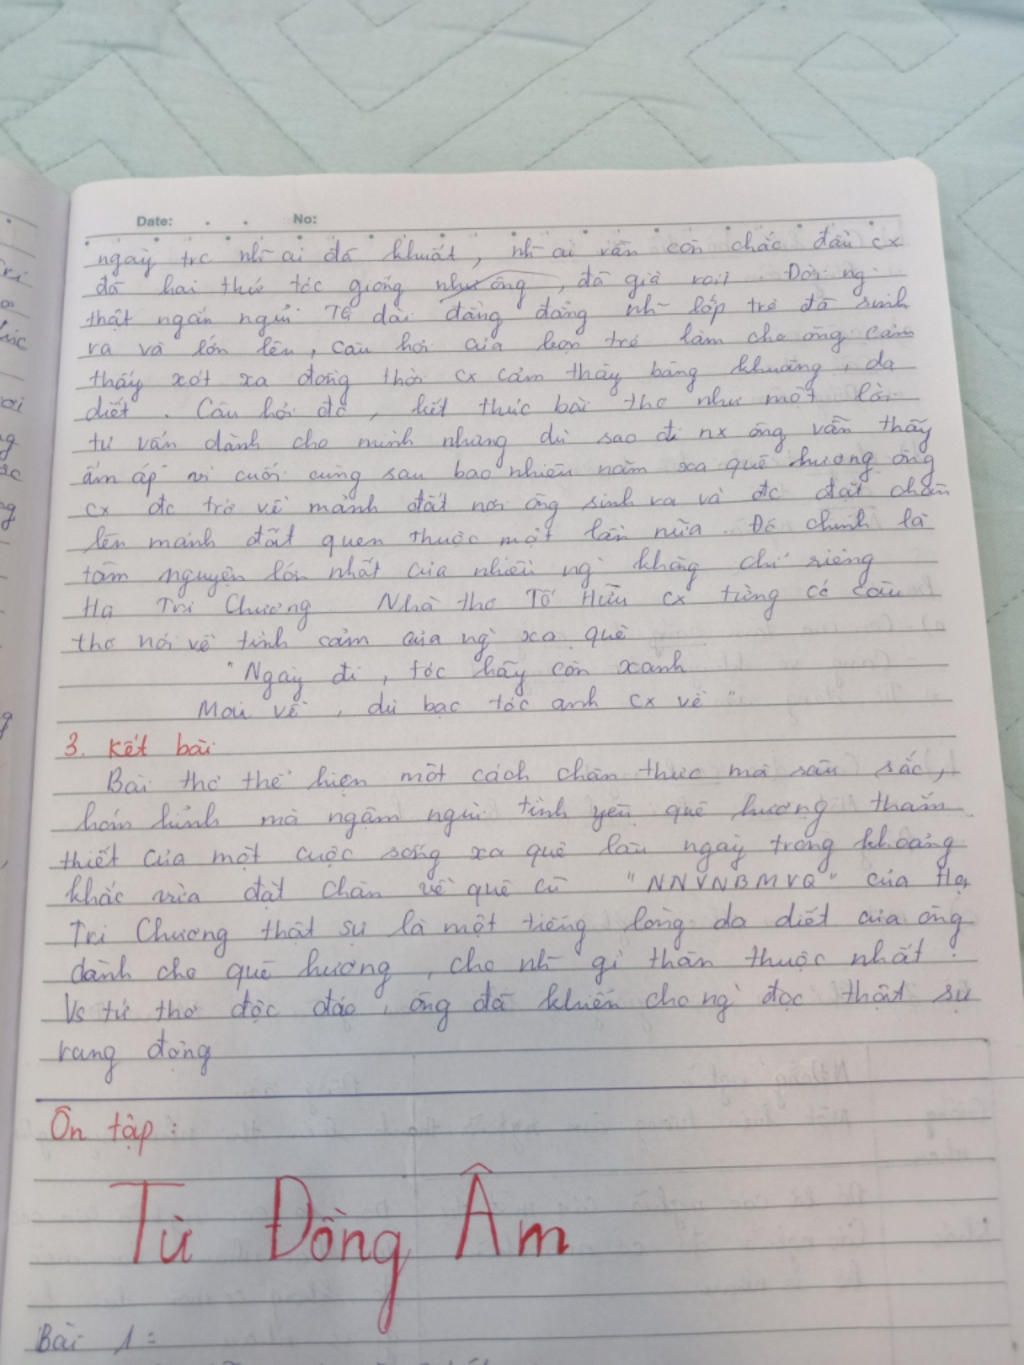 Date: . . No:
ngày trc nh~ ai đã khuất, nh~ ai vẫn còn chắc đầu cx
đã hai thứ tóc giống như ông, đã già rồi. Đời ng`
thật ngắn ngủi TG dài đằng đẵng nh~ lớp trẻ đã sinh
ra và lớn lên, câu hỏi của bọn trẻ làm cho ông cảm
thấy xót xa đồng thời cx cảm thấy bâng khuâng, da
diết. Câu hỏi đó, kết thúc bài thơ như một lời
tư vấn dành cho mình nhưng dù sao đi nx ông vẫn thấy
ấm áp vì cuối cùng sau bao nhiêu năm xa quê hương ông
cx đc trở về mảnh đất nơi ông sinh ra và đc đặt chân
lên mảnh đất quen thuộc một lần nữa. Đó chính là
tâm nguyện lớn nhất của nhiều ng` không chỉ riêng
Hạ Tri Chương Nhà thơ Tố Hữu cx từng có câu
thơ nói về tình cảm của ng` xa quê
"Ngày đi, tóc hãy còn xanh
Mai về, dù bạc tóc anh cx về"
3. Kết bài
Bài thơ thể hiện một cách chân thực mà sâu sắc,
hóm hỉnh mà ngậm ngùi tình yêu quê hương thắm
thiết của một cuộc sống xa quê lâu ngày trong khoảng
khắc vừa đặt chân về quê cũ "NNVNBMVQ" của Hạ
Tri Chương thật sự là một tiếng lòng da diết của ông
dành cho quê hương, cho nh~ gì thân thuộc nhất!
Vs tứ thơ độc đáo, ông đã khiến cho ng` đọc thật sự
rung động
Ôn tập:
Từ Đồng Âm
Bài 1: